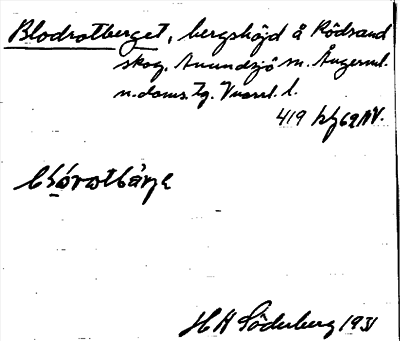 Blodrotberget, bergshöjd å Rödsand
skog, Anundsjö sn. Ångerml.
n. doms. tg. Vnorrl. l.
419 hfz 69 NV.
H H Söderberg 1931